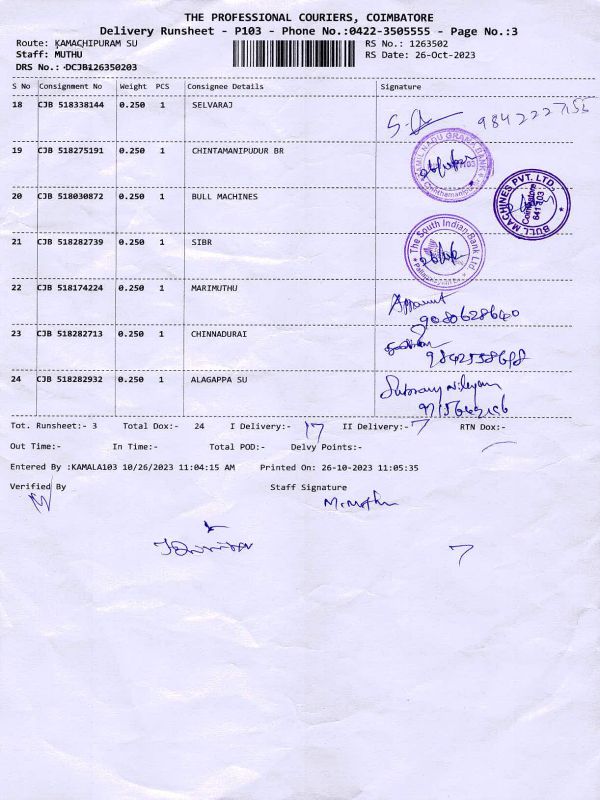 THE PROFESSIONAL COURIERS, COIMBATORE
Delivery Runsheet - P103 - Phone No.:0422-3505555 - Page No.:3
Route: KAMACHIPURAM SU RS No.: 1263502
Staff: MUTHU RS Date: 26-Oct-2023
DRS No.: DCJB126350203
S No Consignment No Weight PCS Consignee Details Signature
18 CJB 518338144 0.250 1 SELVARAJ
9842227155
19 CJB 518275191 0.250 1 CHINTAMANIPUDUR BR
20 CJB 518030872 0.250 1 BULL MACHINES
BULL MACHINES PVT. LTD.,
Coimbatore
641 103
21 CJB 518282739 0.250 1 SIBR
The South Indian Bank Ltd
22 CJB 518174224 0.250 1 MARIMUTHU
9080628640
23 CJB 518282713 0.250 1 CHINNADURAI
24 CJB 518282932 0.250 1 ALAGAPPA SU
Tot. Runsheet:- 3 Total Dox:- 24 I Delivery:- 17 II Delivery:- 7 RTN Dox:-
Out Time:- In Time:- Total POD:- Delvy Points:-
Entered By :KAMALA103 10/26/2023 11:04:15 AM Printed On: 26-10-2023 11:05:35
Verified By Staff Signature
M. Muthu
7